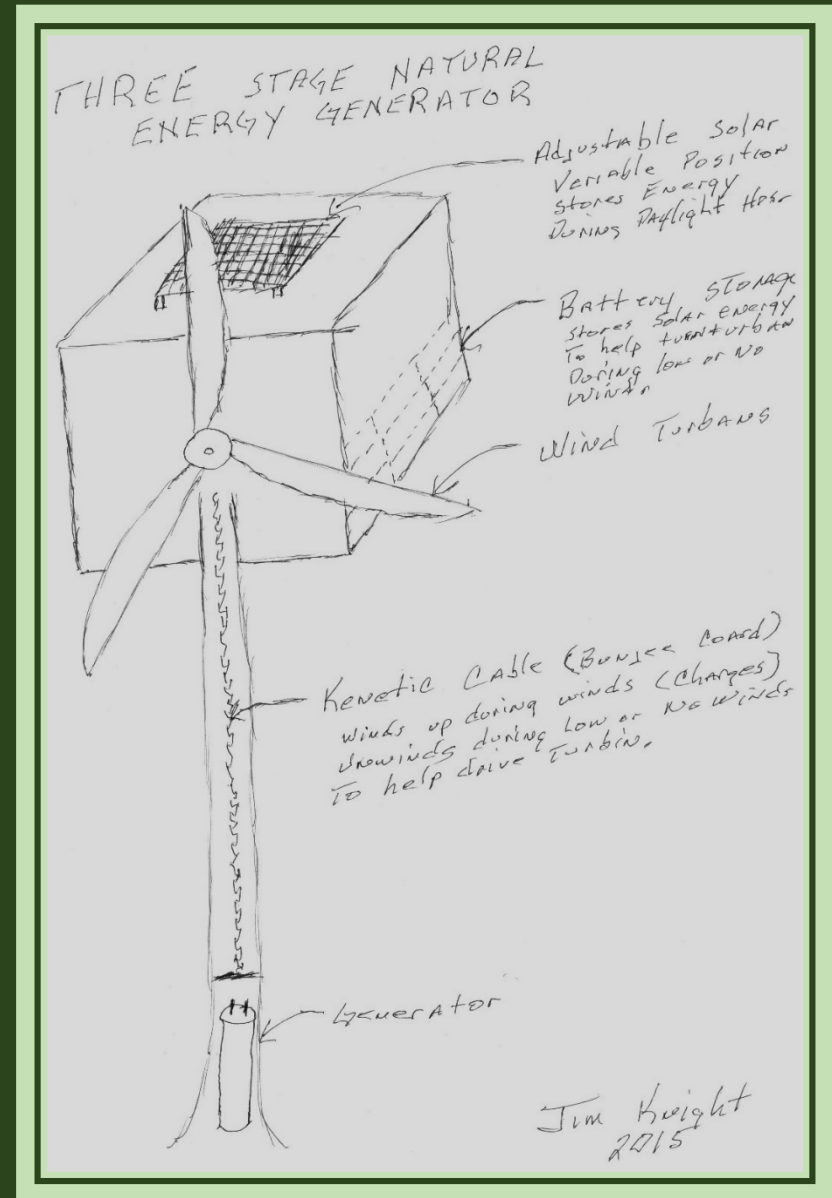 THREE STAGE NATURAL
ENERGY GENERATOR
Adjustable Solar
Veriable Position
stores Energy
During Daylight Hosr
Battery STorage
stores Solar energy
To help turnturban
During low or No
winds
Wind Turbans
Kenetic Cable (Bunjee Coard)
winds up during winds (Charges)
Unwinds during Low or No winds
To help drive Turbin.
Generator
Jim Knight
2015